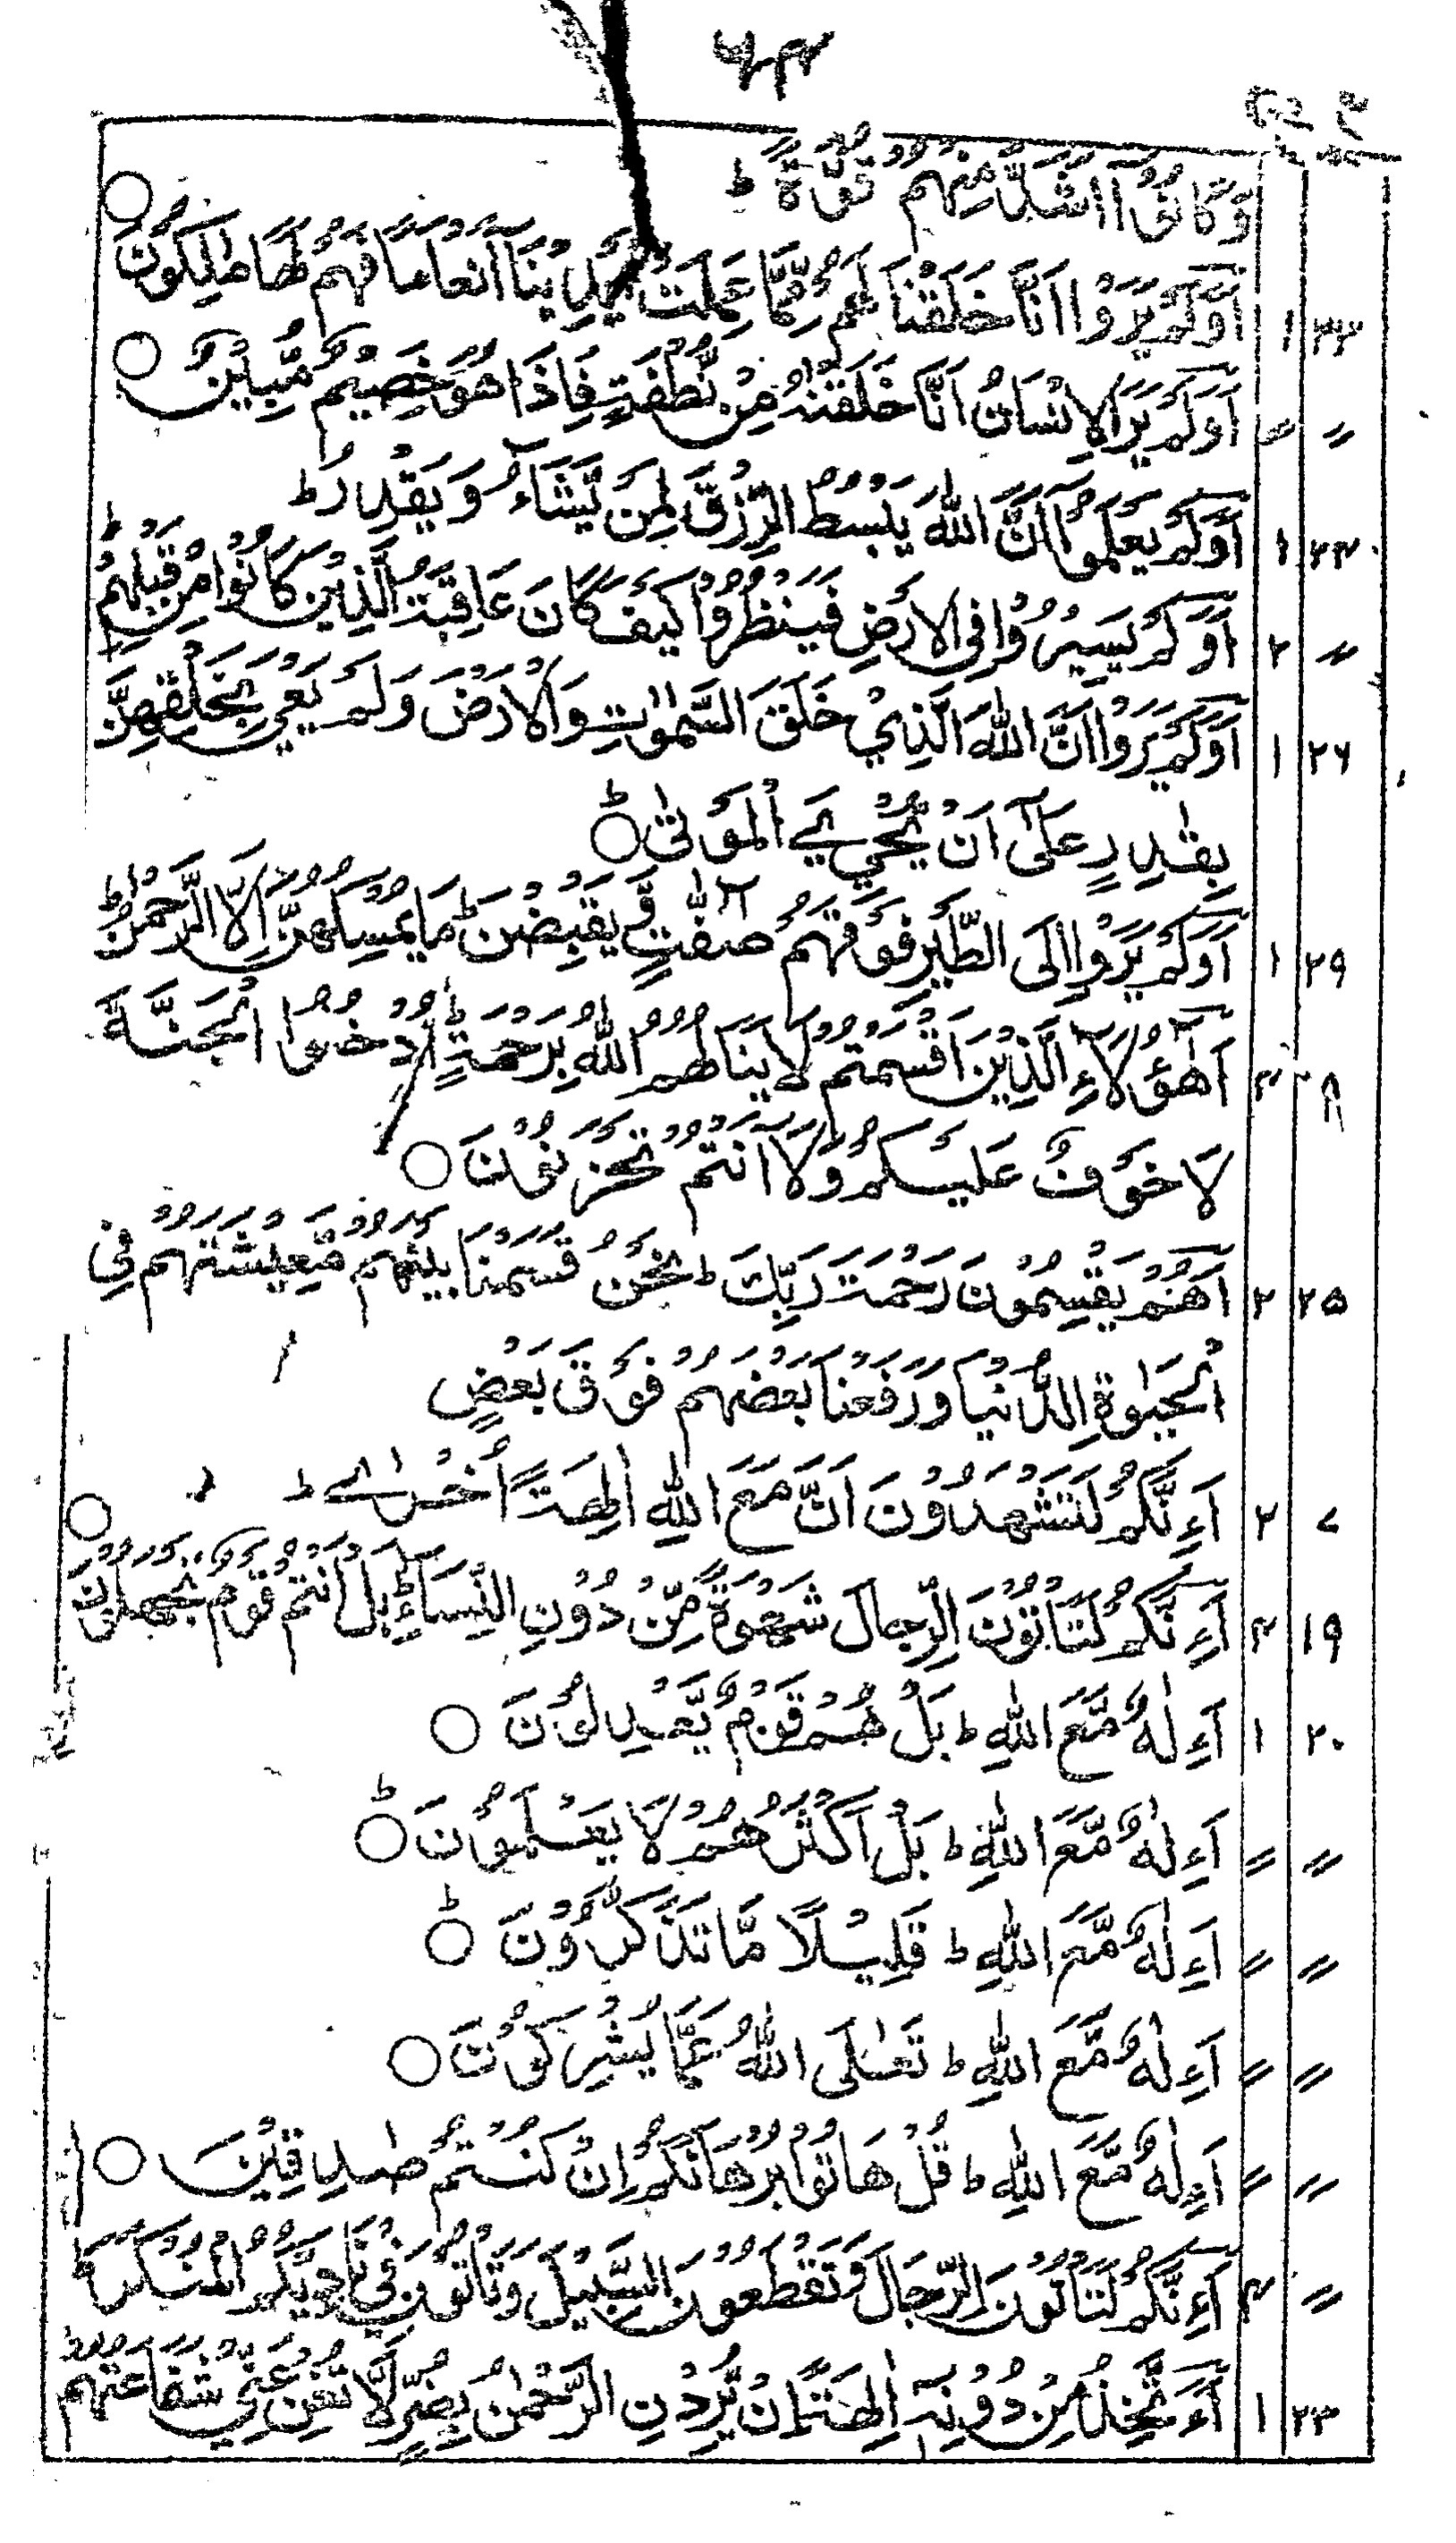 ۶۴
وَكَانُوْٓا اَشَدَّ مِنْهُمْ قُوَّةً ؕ
۲۳ ۱ اَوَلَمْ يَرَوْا اَنَّا خَلَقْنَا لَهُمْ مِّمَّا عَمِلَتْ اَيْدِيْنَا اَنْعَامًا فَهُمْ لَهَا مٰلِكُوْنَ ○
〃 〃 اَوَلَمْ يَرَ الْاِنْسَانُ اَنَّا خَلَقْنٰهُ مِنْ نُّطْفَةٍ فَاِذَا هُوَ خَصِيْمٌ مُّبِيْنٌ ○
۲۴ ۱ اَوَلَمْ يَعْلَمُوْٓا اَنَّ اللّٰهَ يَبْسُطُ الرِّزْقَ لِمَنْ يَّشَآءُ وَيَقْدِرُ ؕ
〃 ۲ اَوَلَمْ يَسِيْرُوْا فِى الْاَرْضِ فَيَنْظُرُوْا كَيْفَ كَانَ عَاقِبَةُ الَّذِيْنَ كَانُوْا مِنْ قَبْلِهِمْ ؕ
۲۶ ۱ اَوَلَمْ يَرَوْا اَنَّ اللّٰهَ الَّذِيْ خَلَقَ السَّمٰوٰتِ وَالْاَرْضَ وَلَمْ يَعْيَ بِخَلْقِهِنَّ
بِقٰدِرٍ عَلٰٓى اَنْ يُّحْيِيَ الْمَوْتٰى ؕ○
۲۹ ۱ اَوَلَمْ يَرَوْا اِلَى الطَّيْرِ فَوْقَهُمْ صٰٓفّٰتٍ وَّيَقْبِضْنَ ؕ مَا يُمْسِكُهُنَّ اِلَّا الرَّحْمٰنُ ؕ
۸ ۳ اَهٰٓؤُلَآءِ الَّذِيْنَ اَقْسَمْتُمْ لَا يَنَالُهُمُ اللّٰهُ بِرَحْمَةٍ ؕ اُدْخُلُوا الْجَنَّةَ
لَا خَوْفٌ عَلَيْكُمْ وَلَآ اَنْتُمْ تَحْزَنُوْنَ ○
۲۵ ۲ اَهُمْ يَقْسِمُوْنَ رَحْمَتَ رَبِّكَ ؕ نَحْنُ قَسَمْنَا بَيْنَهُمْ مَّعِيْشَتَهُمْ فِي
الْحَيٰوةِ الدُّنْيَا وَرَفَعْنَا بَعْضَهُمْ فَوْقَ بَعْضٍ
۷ ۲ اَئِنَّكُمْ لَتَشْهَدُوْنَ اَنَّ مَعَ اللّٰهِ اٰلِهَةً اُخْرٰى ؕ
۱۹ ۴ اَئِنَّكُمْ لَتَاْتُوْنَ الرِّجَالَ شَهْوَةً مِّنْ دُوْنِ النِّسَآءِ ؕ بَلْ اَنْتُمْ قَوْمٌ تَجْهَلُوْنَ ○
۲۰ ۱ ءَاِلٰهٌ مَّعَ اللّٰهِ ؕ بَلْ هُمْ قَوْمٌ يَّعْدِلُوْنَ ○
〃 〃 ءَاِلٰهٌ مَّعَ اللّٰهِ ؕ بَلْ اَكْثَرُهُمْ لَا يَعْلَمُوْنَ ؕ○
〃 〃 ءَاِلٰهٌ مَّعَ اللّٰهِ ؕ قَلِيْلًا مَّا تَذَكَّرُوْنَ ؕ○
〃 〃 ءَاِلٰهٌ مَّعَ اللّٰهِ ؕ تَعٰلَى اللّٰهُ عَمَّا يُشْرِكُوْنَ ○
〃 〃 ءَاِلٰهٌ مَّعَ اللّٰهِ ؕ قُلْ هَاتُوْا بُرْهَانَكُمْ اِنْ كُنْتُمْ صٰدِقِيْنَ ○
〃 ۴ اَئِنَّكُمْ لَتَاْتُوْنَ الرِّجَالَ وَتَقْطَعُوْنَ السَّبِيْلَ وَتَاْتُوْنَ فِيْ نَادِيْكُمُ الْمُنْكَرَ ؕ
۲۳ ۱ ءَاَتَّخِذُ مِنْ دُوْنِهٖٓ اٰلِهَةً اِنْ يُّرِدْنِ الرَّحْمٰنُ بِضُرٍّ لَّا تُغْنِ عَنِّيْ شَفَاعَتُهُمْ